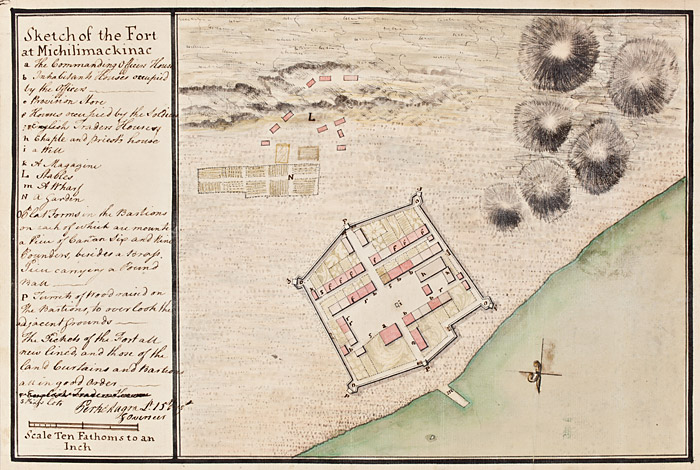 Sketch of the Fort
at Michilimackinac
a The Commanding Officers House
b Inhabitants Houses occupied
by the Officers
c Provision Store
Houses occupied by the Soldiers
English Traders Houses
h Chaple and priests house
i a Well
k A Magazine
L Stables
m A Wharf
N a Garden
O Platforms in the Bastions
on each of which are mounted
a Piece of Canon Six and Nine
Pounders, besides a brass
Piece carrying a Pound
Ball
P Turrets of Wood raised on
the Bastions, to overlook the
adjacent grounds
The Pickets of the Fort all
new lined, and those of the
land Curtains and Bastions
all in good Order
English Traders Houses
Perkins Magra Lt 15th
Scale Ten Fathoms to an
Inch
L
N